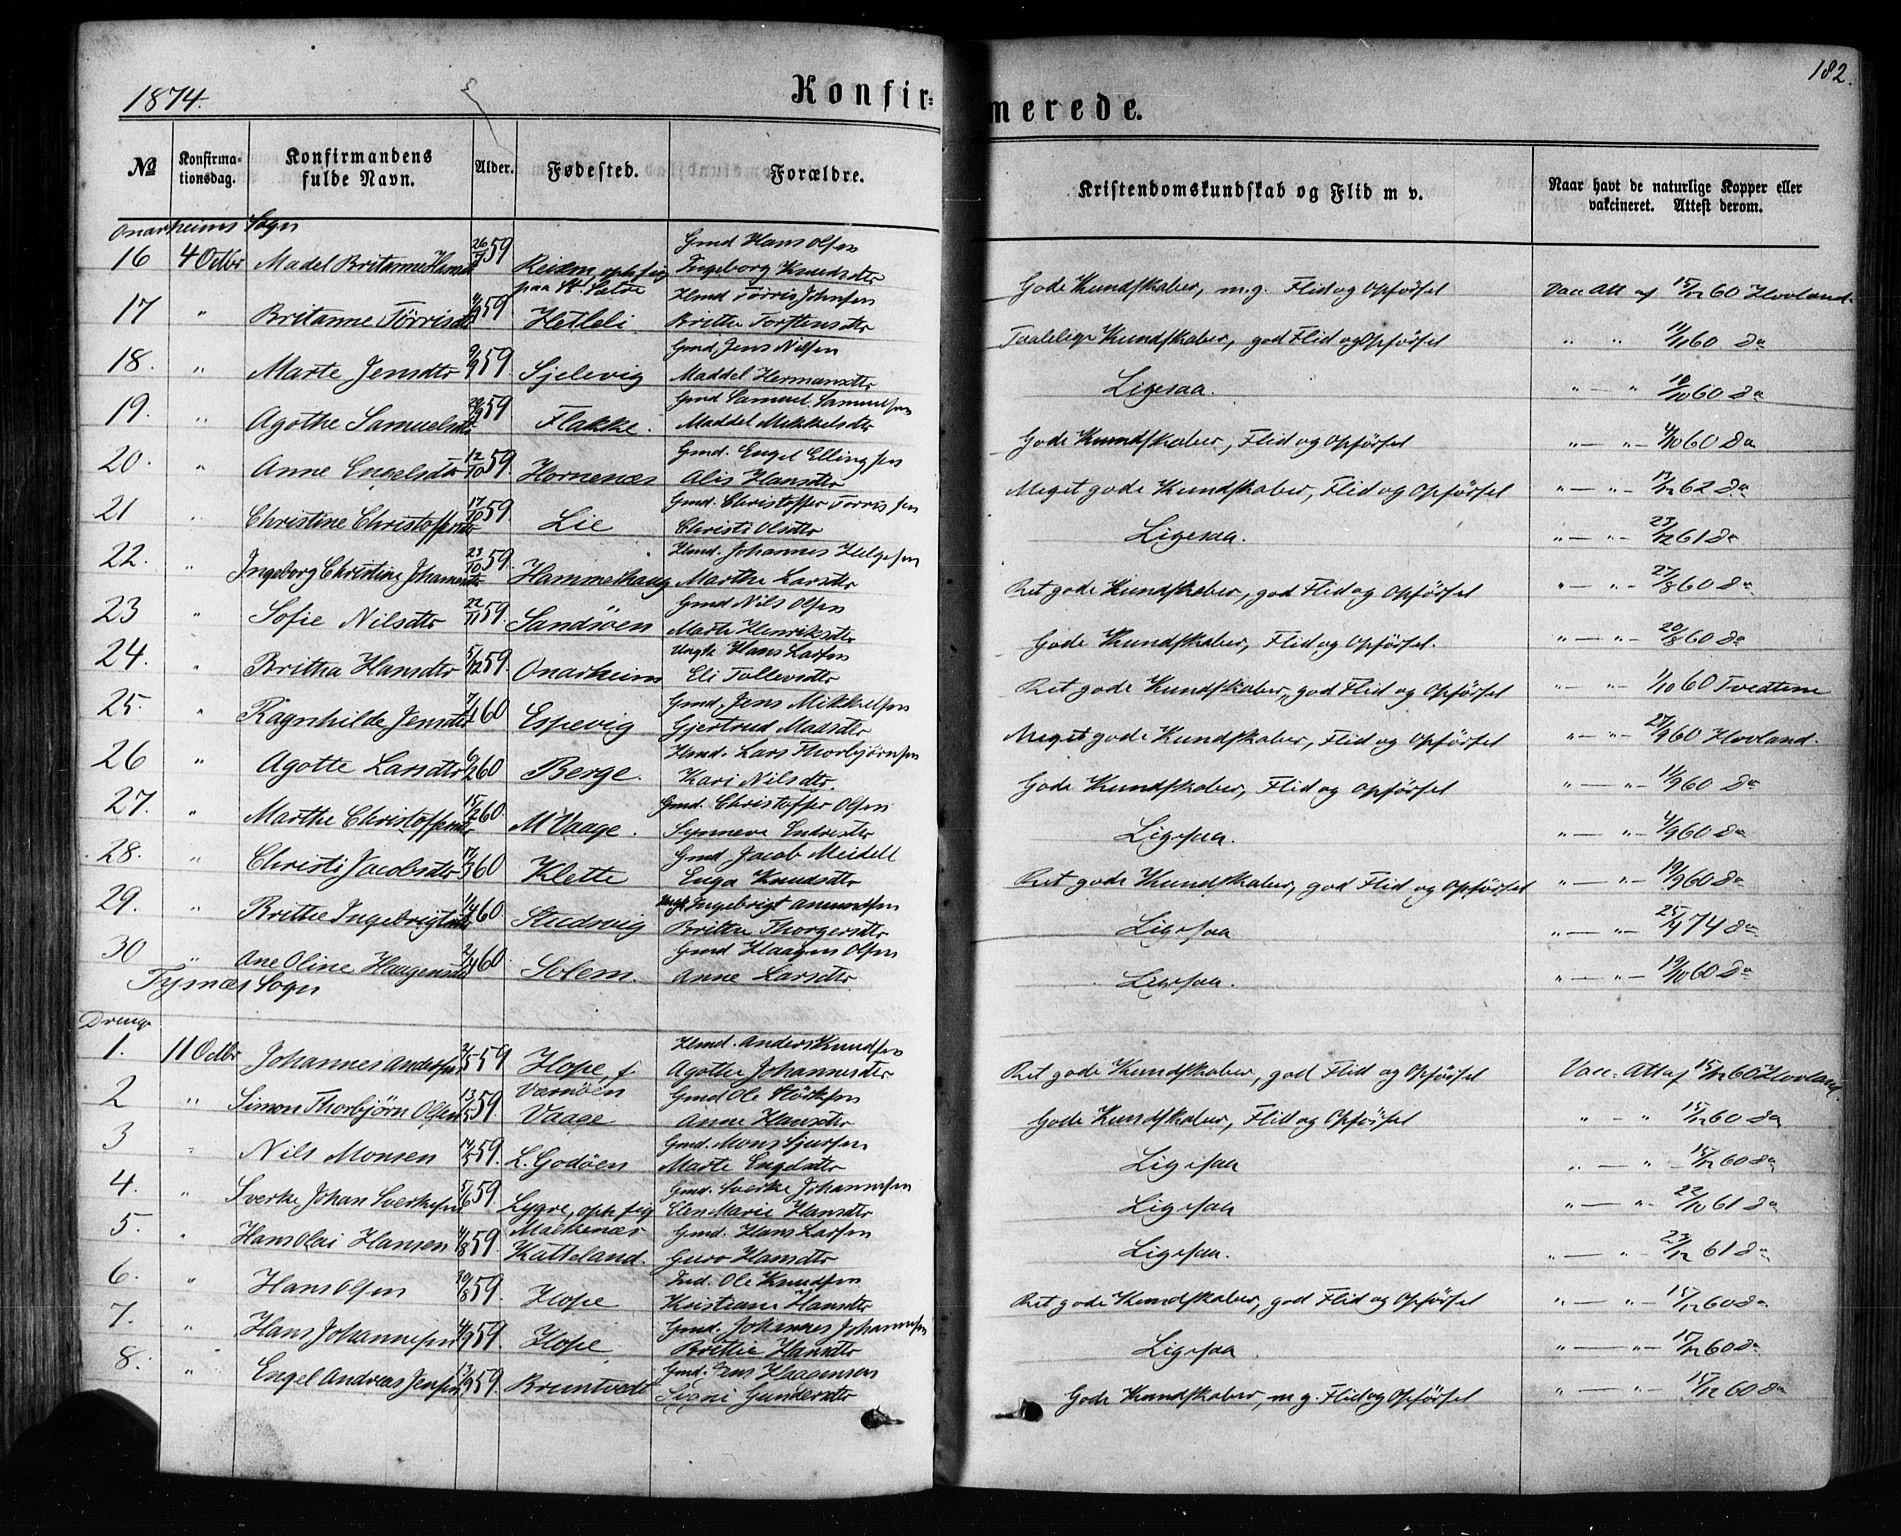 1874.
Konfir=
merede.
182.
№
Konfirma-
tionsdag.
Konfirmandens
fulde Navn.
Alder.
Fødested.
Forældre.
Kristendomskundskab og Flid m v.
Naar havt de naturlige Kopper eller
vakcineret. Attest derom.
Onarheims Sogn
16 4 Octbr Madel Britanne Hansdtr 59 Reism, oph sig paa St. Sætre Gmd Hans Olsen Ingeborg Knudsdtr Gode Kundskaber, m.g. Flid og Opførsel Vac Att af 15/12 60 Hovland
17 " Britanne Tørrisdtr 59 Hetleli Hmd Tørris Johnsen Brithe Torstensdtr Taalelige Kundskaber, god Flid og Opførsel " " 11/11 60 Do
18. " Marte Jensdtr 9/9 59 Sjelevig Gmd, Jens Nilsen Maddel Hermansdtr Ligesaa. " — " 10/10 60 Do
19. " Agothe Samuelsdtr 59 Flakke. Gmd Samuel Samuelsen Maddel Mikkelsdtr Gode Kundskaber, Flid og Opførsel " — " — 4/10 60 Do
20. " Anne Engelsdtr 12/10 59. Hornenæs Gmd. Engel Ellingsen Alis Hansdtr Meget gode Kundskaber, Flid og Opførsel " — " — 13/12 62 Do
21 " Christine Christoffersdtr 17/10 59. Lie Gmd. Christoffer Tørrissen Christi Olsdtr Ligesaa. " — " — 23/12 61 Do
22. " Ingeborg Christine Johannesdtr 23/10 59. Hammerhaug Hmd. Johannes Helgesen Marthe Larsdtr Ret gode Kundskaber, god Flid og Opførsel " — " — 27/8 60 Do
23 " Sofie Nilsdtr 22/11 59. Sandøen Gmd Nils Olsen Marte Henriksdtr Gode Kundskaber, Flid og Opførsel. " — " — 20/8 60 Do
24. " Brittha Hansdtr 5/12 59. Onarheim Ungk Hans Larsen Eli Tollevsdtr Ret gode Kundskaber, god Flid og Opførsel " — " — 1/10 60 Tvedtene
25. " Ragnhilde Jensdtr 7/1 60 Espevig Gmd, Jens Mikkelsen Gjertrud Madsdtr Meget gode Kundskaber, Flid og Opførsel " — " — 28/9 60 Hovland.
26 " Agotte Larsdtr 6/2 60 Berge. Hmd. Lars Thorbjørnsen Kari Nilsdtr. Gode Kundskaber, Flid og Opførsel " — " — 11/9 60 Do
27. " Marthe Christoffersdtr 15/2 60. M Vaage. Gmd. Christoffer Olsen Synneva Endresdtr Ligesaa. " — " — 4/9 60 Do
28. " Christi Jacobsdtr 17/3 60 Klette Gmd, Jacob Meidell Enga Knudsdtr Ret gode Kundskaber, god Flid og Opførsel " — " — 19/9 60 Do
29. " Brithe Ingebrigtsdtr 1/4 60. Studsvig Ungk Ingebrigt Amundsen Britta Thorgersdtr Ligesaa " — " — 25/9 74 Do
30 " Ane Oline Haagensdtr 2/4 60 Solem. Gmd Haagen Olsen Anne Larsdtr Ligesaa. " — " — 19/10 60 Do
Tysnæs Sogn
Drenge
1. 11 Octbr Johannes Andersen 2/5 59 Hope, f Værnøen Hmd. Anders Knudsen Agothe Johannesdtr Ret gode Kundskaber, god Flid og Opførsel Vac. Att af 15/12 60 Hovland.
2 " Simon Thorbjørn Olsen 13/5 59. Vaage Gmd Ole Størksen Anne Hansdtr Gode Kundskaber, Flid og Opførsel " — " 15/12 60 Do
3 " Nils Monsen 17/5 59. L. Godøen Gmd. Mons Sjursen Marte Engelsdtr Ligesaa " — " — 15/12 60 Do
4. " Sverke Johan Sverkesen 5/6 59 Lygre, oph sig Malkenæs Gmd. Sverke Johannesen Elen Marie Hansdtr Ligesaa " — " — 22/10 61 Do
5. " Hans Olai Hansen 11/8 59 Katteland. Gmd. Hans Larsen Guro Hansdtr Ligesaa. " — " — 23/12 61 Do
6. " Hans Olsen 19/8 59. Hope Ind. Ole Knudsen Kristiane Hansdtr Ret gode Kundskaber, god Flid og Opførsel " — " — 15/12 60 Do
7. " Hans Johannesen 4/9 59 Hope Gmd. Johannes Johannesen Brithe Hansdtr Ligesaa " — " — 15/12 60 Do
8. " Engel Andreas Jensen 13/9 59. Bruntvedt Gmd. Jens Haagensen Signi Gundersdtr Gode Kundskaber, m.g. Flid og Opførsel " — " — 15/12 60 Do